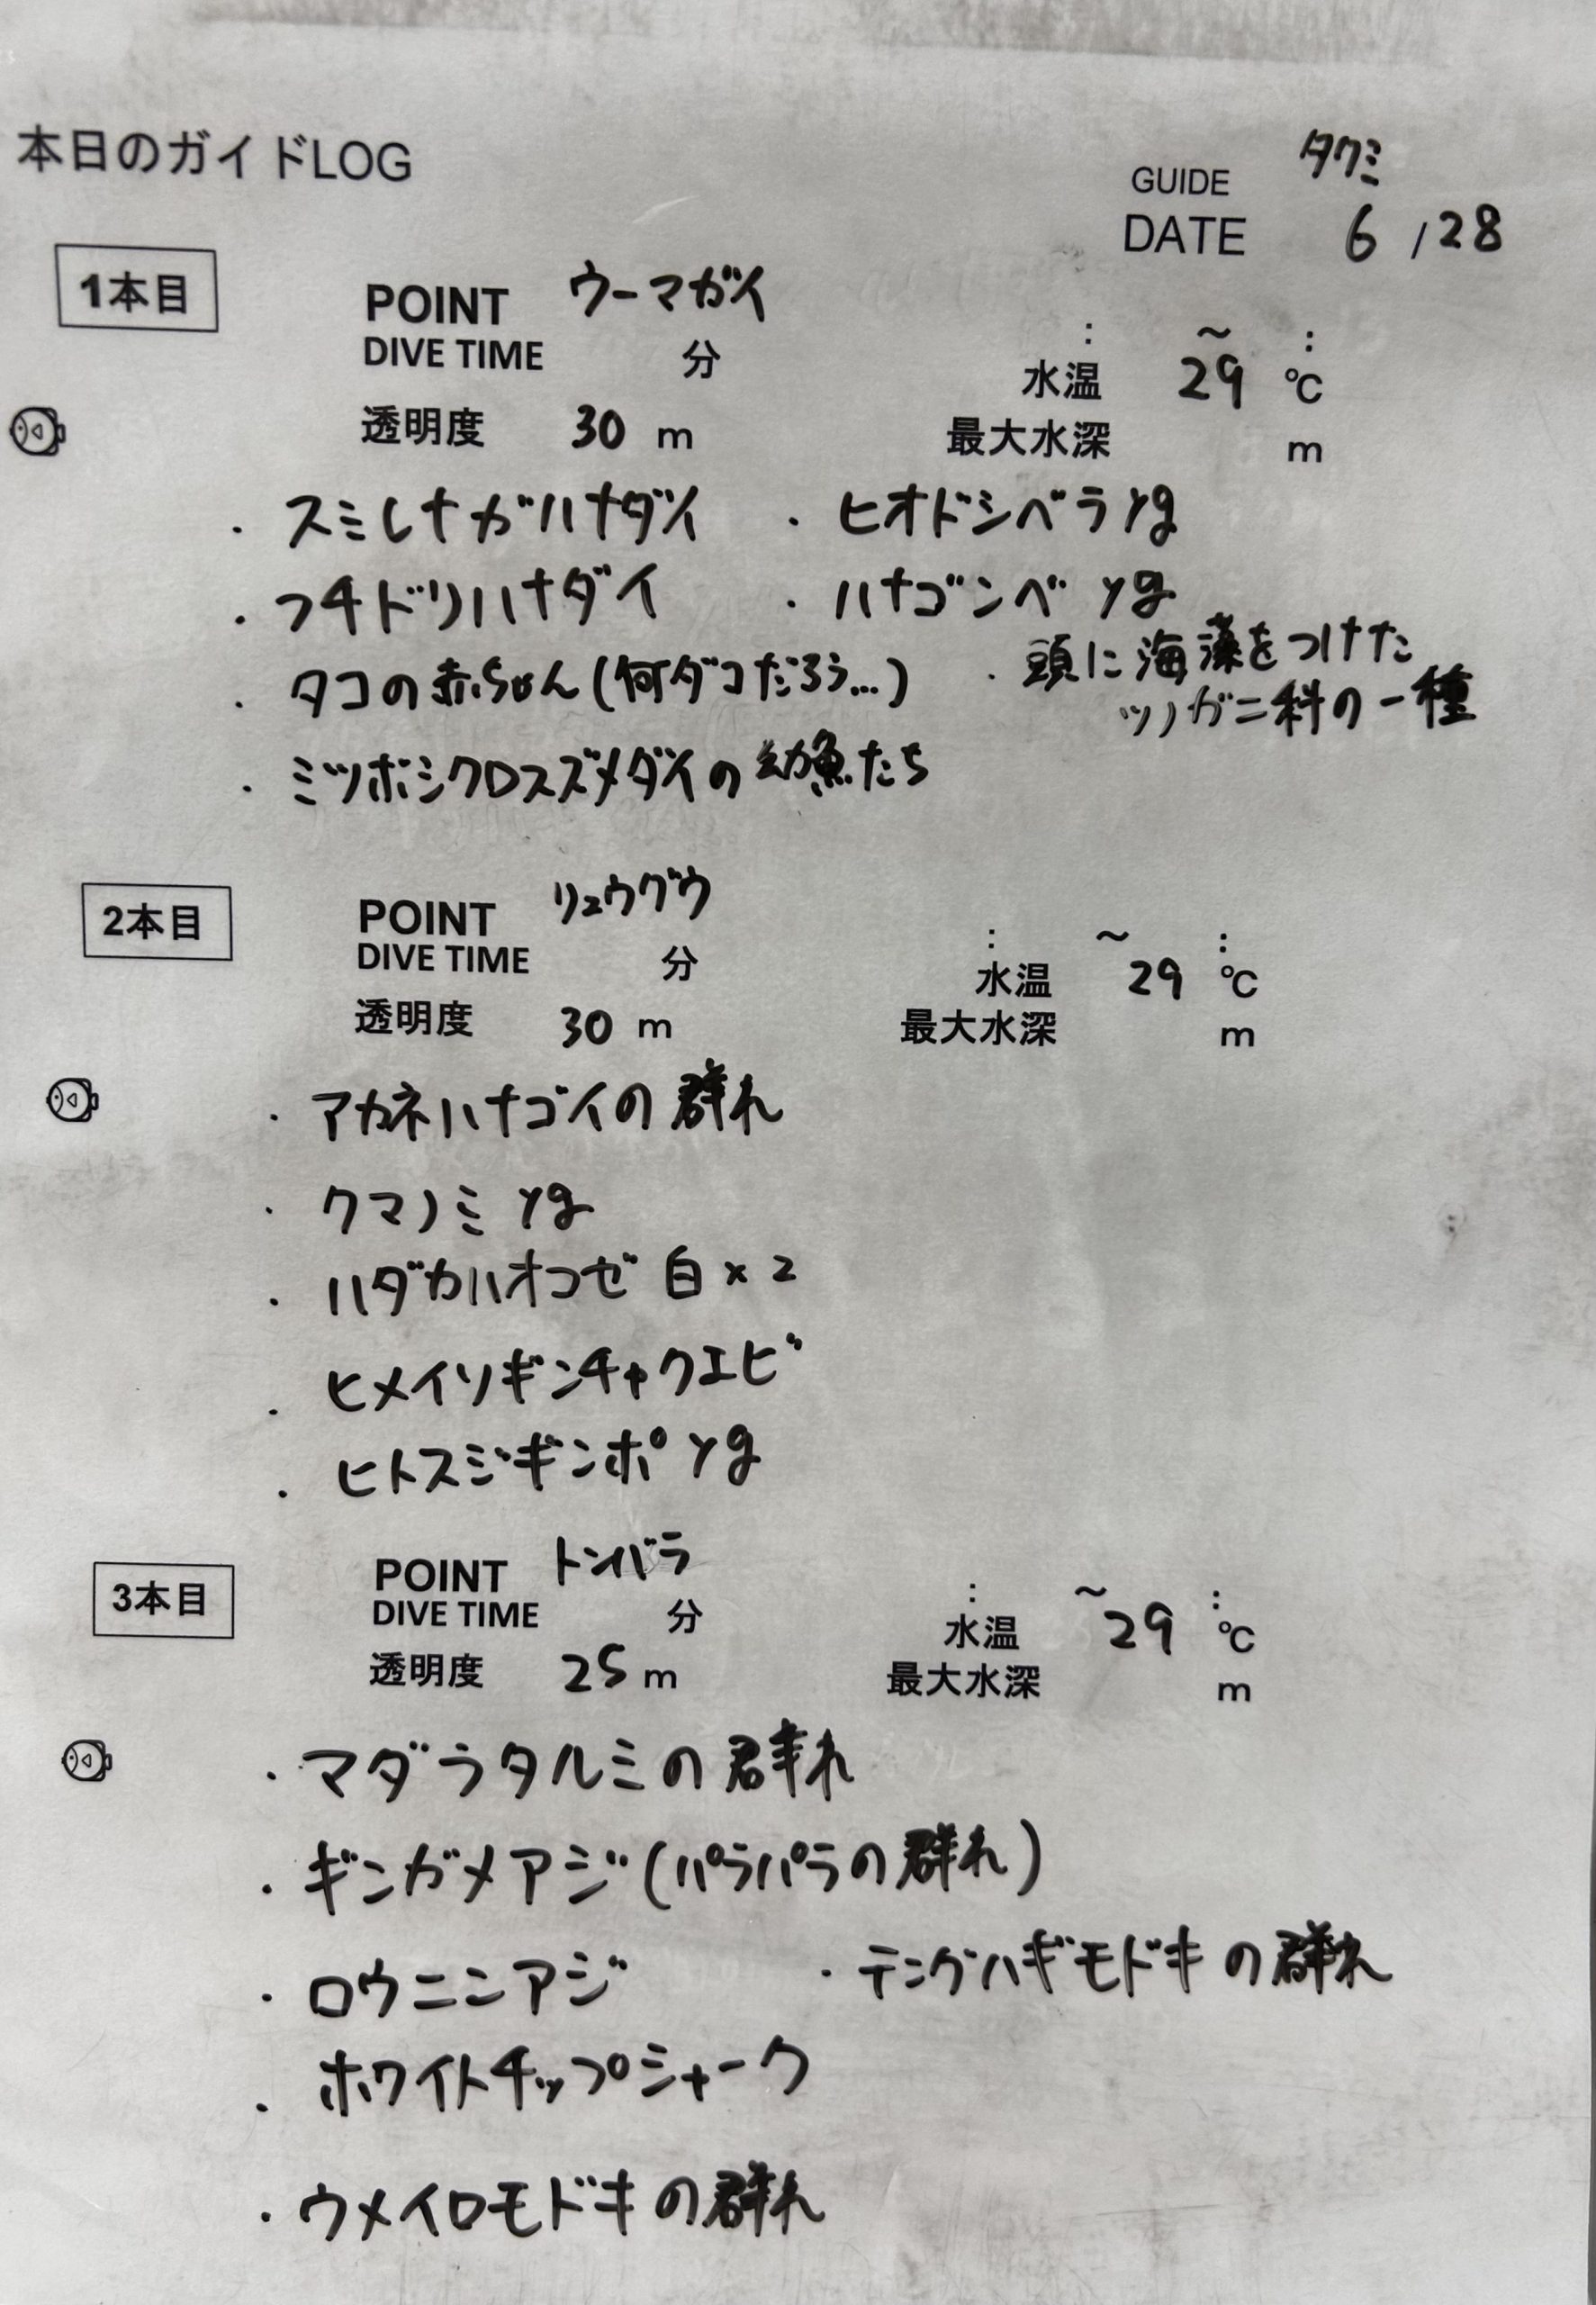 本日のガイドLOG
GUIDE タクミ
DATE 6 /28
1本目
POINT ウーマガイ
DIVE TIME 分 : ～ :
水温 29 ℃
透明度 30 m 最大水深 m
・スミレナガハナダイ ・ヒオドシベラ yg
・フチドリハナダイ ・ハナゴンベ yg
・タコの赤ちゃん(何ダコだろう...) ・頭に海藻をつけた
ツノガニ科の一種
・ミツボシクロスズメダイの幼魚たち
2本目
POINT リュウグウ
DIVE TIME 分 : ～ :
水温 29 ℃
透明度 30 m 最大水深 m
・アカネハナゴイの群れ
・クマノミ yg
・ハダカハオコゼ 白×2
・ヒメイソギンチャクエビ
・ヒトスジギンポ yg
3本目
POINT トンバラ
DIVE TIME 分 : ～ :
水温 29 ℃
透明度 25 m 最大水深 m
・マダラタルミの群れ
・ギンガメアジ(パラパラの群れ)
・ロウニンアジ ・テングハギモドキの群れ
・ホワイトチップシャーク
・ウメイロモドキの群れ